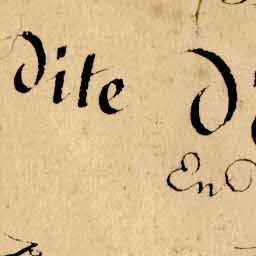 dite d
En